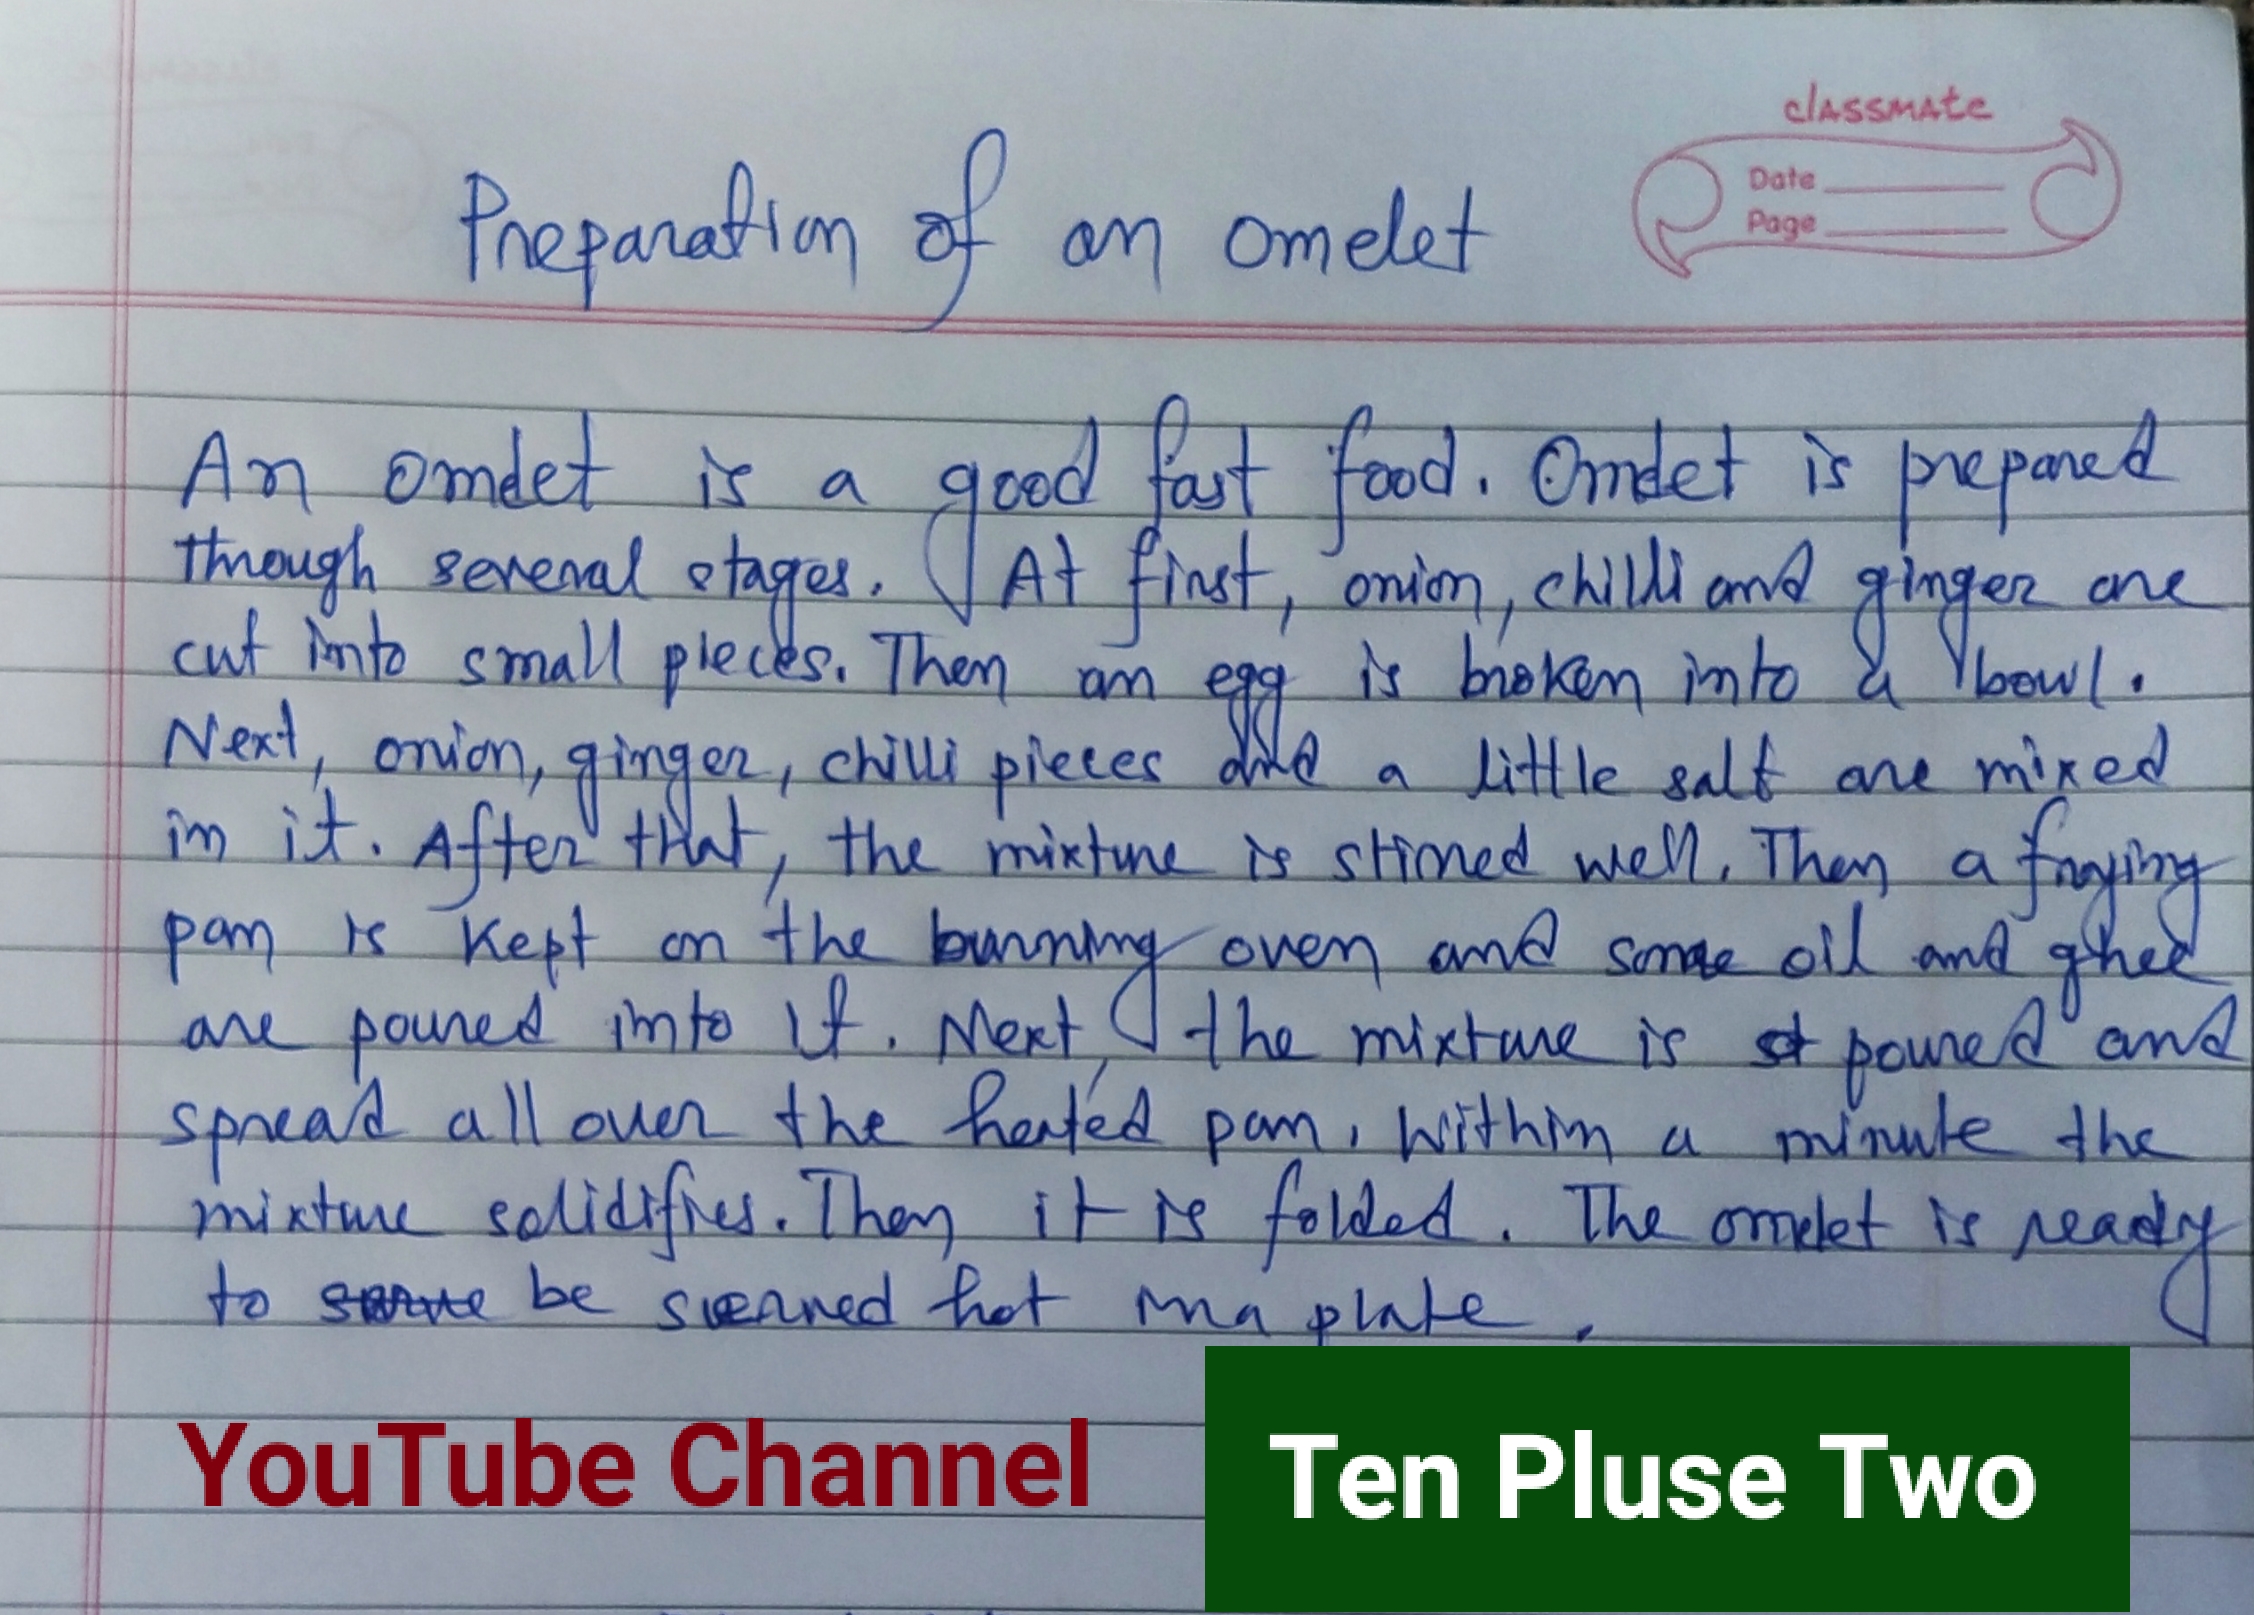 classmate
Date
Page
Preparation of an omelet
An omelet is a good fast food. Omelet is prepared
through several stages. At first, onion, chilli and ginger are
cut into small pieces. Then an egg is broken into a bowl.
Next, onion, ginger, chilli pieces and a little salt are mixed
in it. After that, the mixture is stirred well. Then a fraying
pan is kept on the burning oven and some oil and ghee
are poured into it. Next, the mixture is st poured and
spread all over the heated pan. Within a minute the
mixture solidifies. Then it is folded. The omelet is ready
to serve be served hot in a plate.
YouTube Channel
Ten Pluse Two